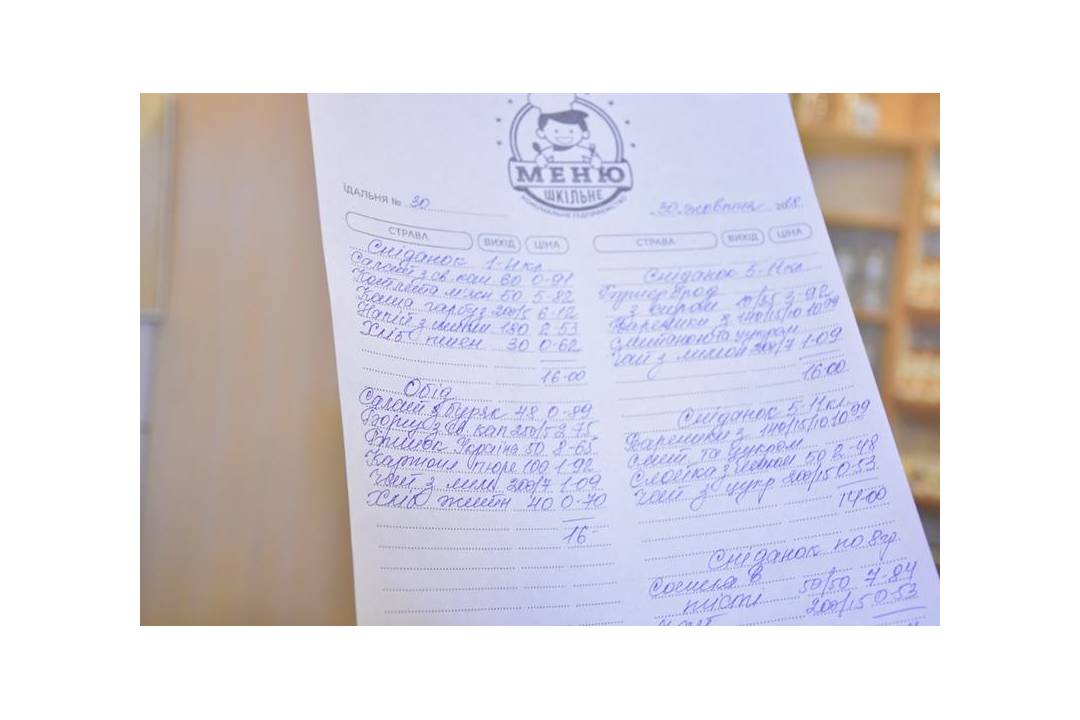 МЕНЮ
ШКІЛЬНЕ
КОМУНАЛЬНЕ ПІДПРИЄМСТВО
ЇДАЛЬНЯ № 30
30 жовтня 2018
СТРАВА ВИХІД ЦІНА
Сніданок 1-4 кл
Салат з св кап 60 0-91
Котлета 50 5-82
Каша гарбуз 200/5 6-12
Напій з 180 2-53
Хліб пшен 30 0-62
16-00
Обід
Салат з буряк 48 0-89
Борщ з св. кап 250/5 2-75
Україна 50 8-65
Картопл пюре 100 1-92
Чай з лим 200/7 1-09
Хліб житн 40 0-70
16-
СТРАВА ВИХІД ЦІНА
Сніданок 5-11 кл
Бутерброд
з сиром 10/35 3-92
Вареники з 140/15/10 10-99
сметаною та цукром
Чай з лимон 200/7 1-09
16-00
Сніданок 5-11 кл
Вареники з 140/15/10 10-99
смет та цукром
Слойка з 50 2-48
Чай з цукр 200/15 0-53
14-00
Сніданок по 8 гр.
Сосиска в
тісті 50/50 7-84
200/15 0-53